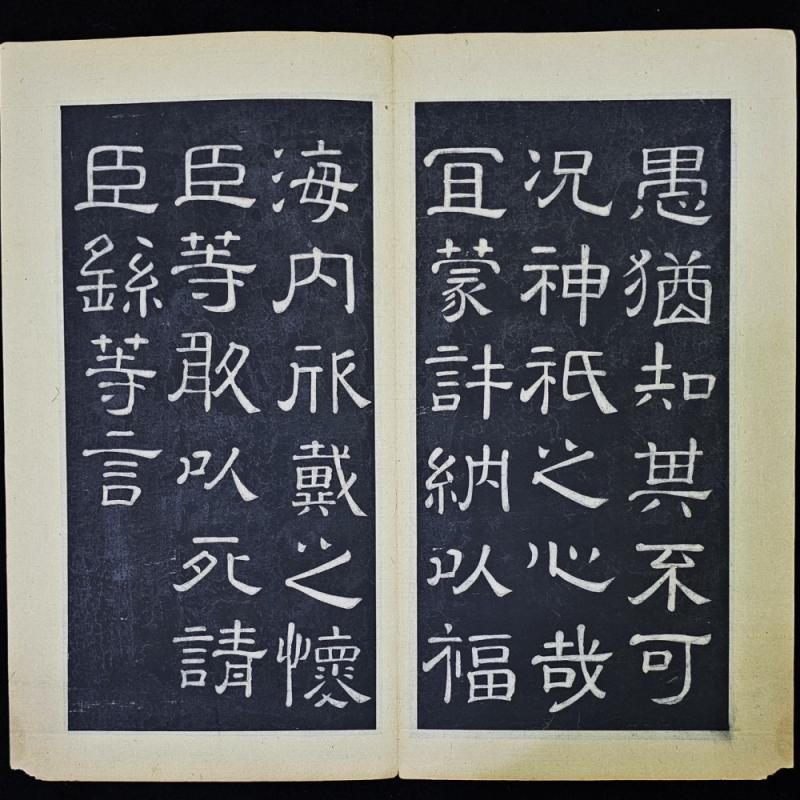 愚猶知其不可
況神祇之心哉
冝蒙許納以福
海内戴之懷
臣等敢以死請
臣繇等言